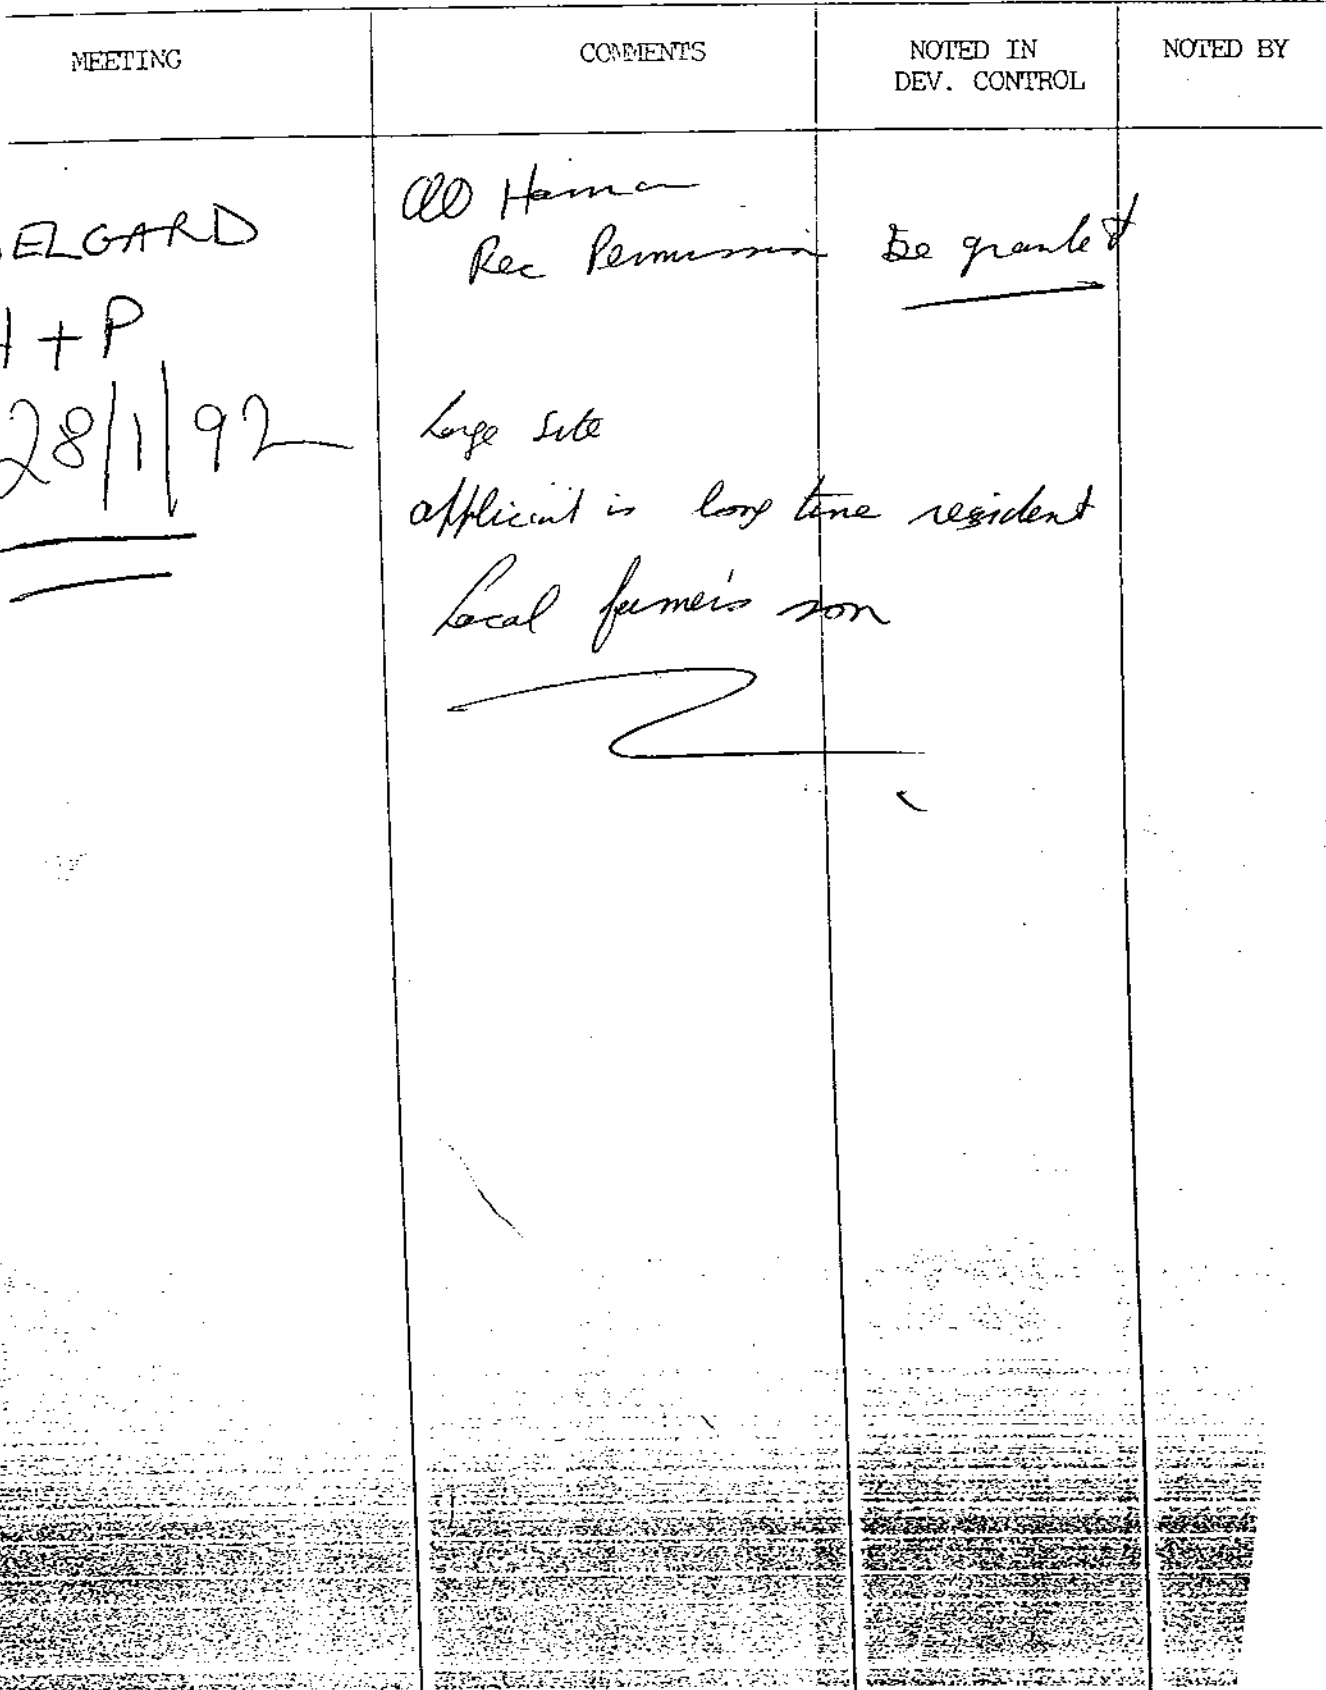 MEETING
COMMENTS
NOTED IN
DEV. CONTROL
NOTED BY
ELGARD
+ P
28/1/92
Rec Permission be granted
Large Site
applicant is long time resident
Local farmer's son